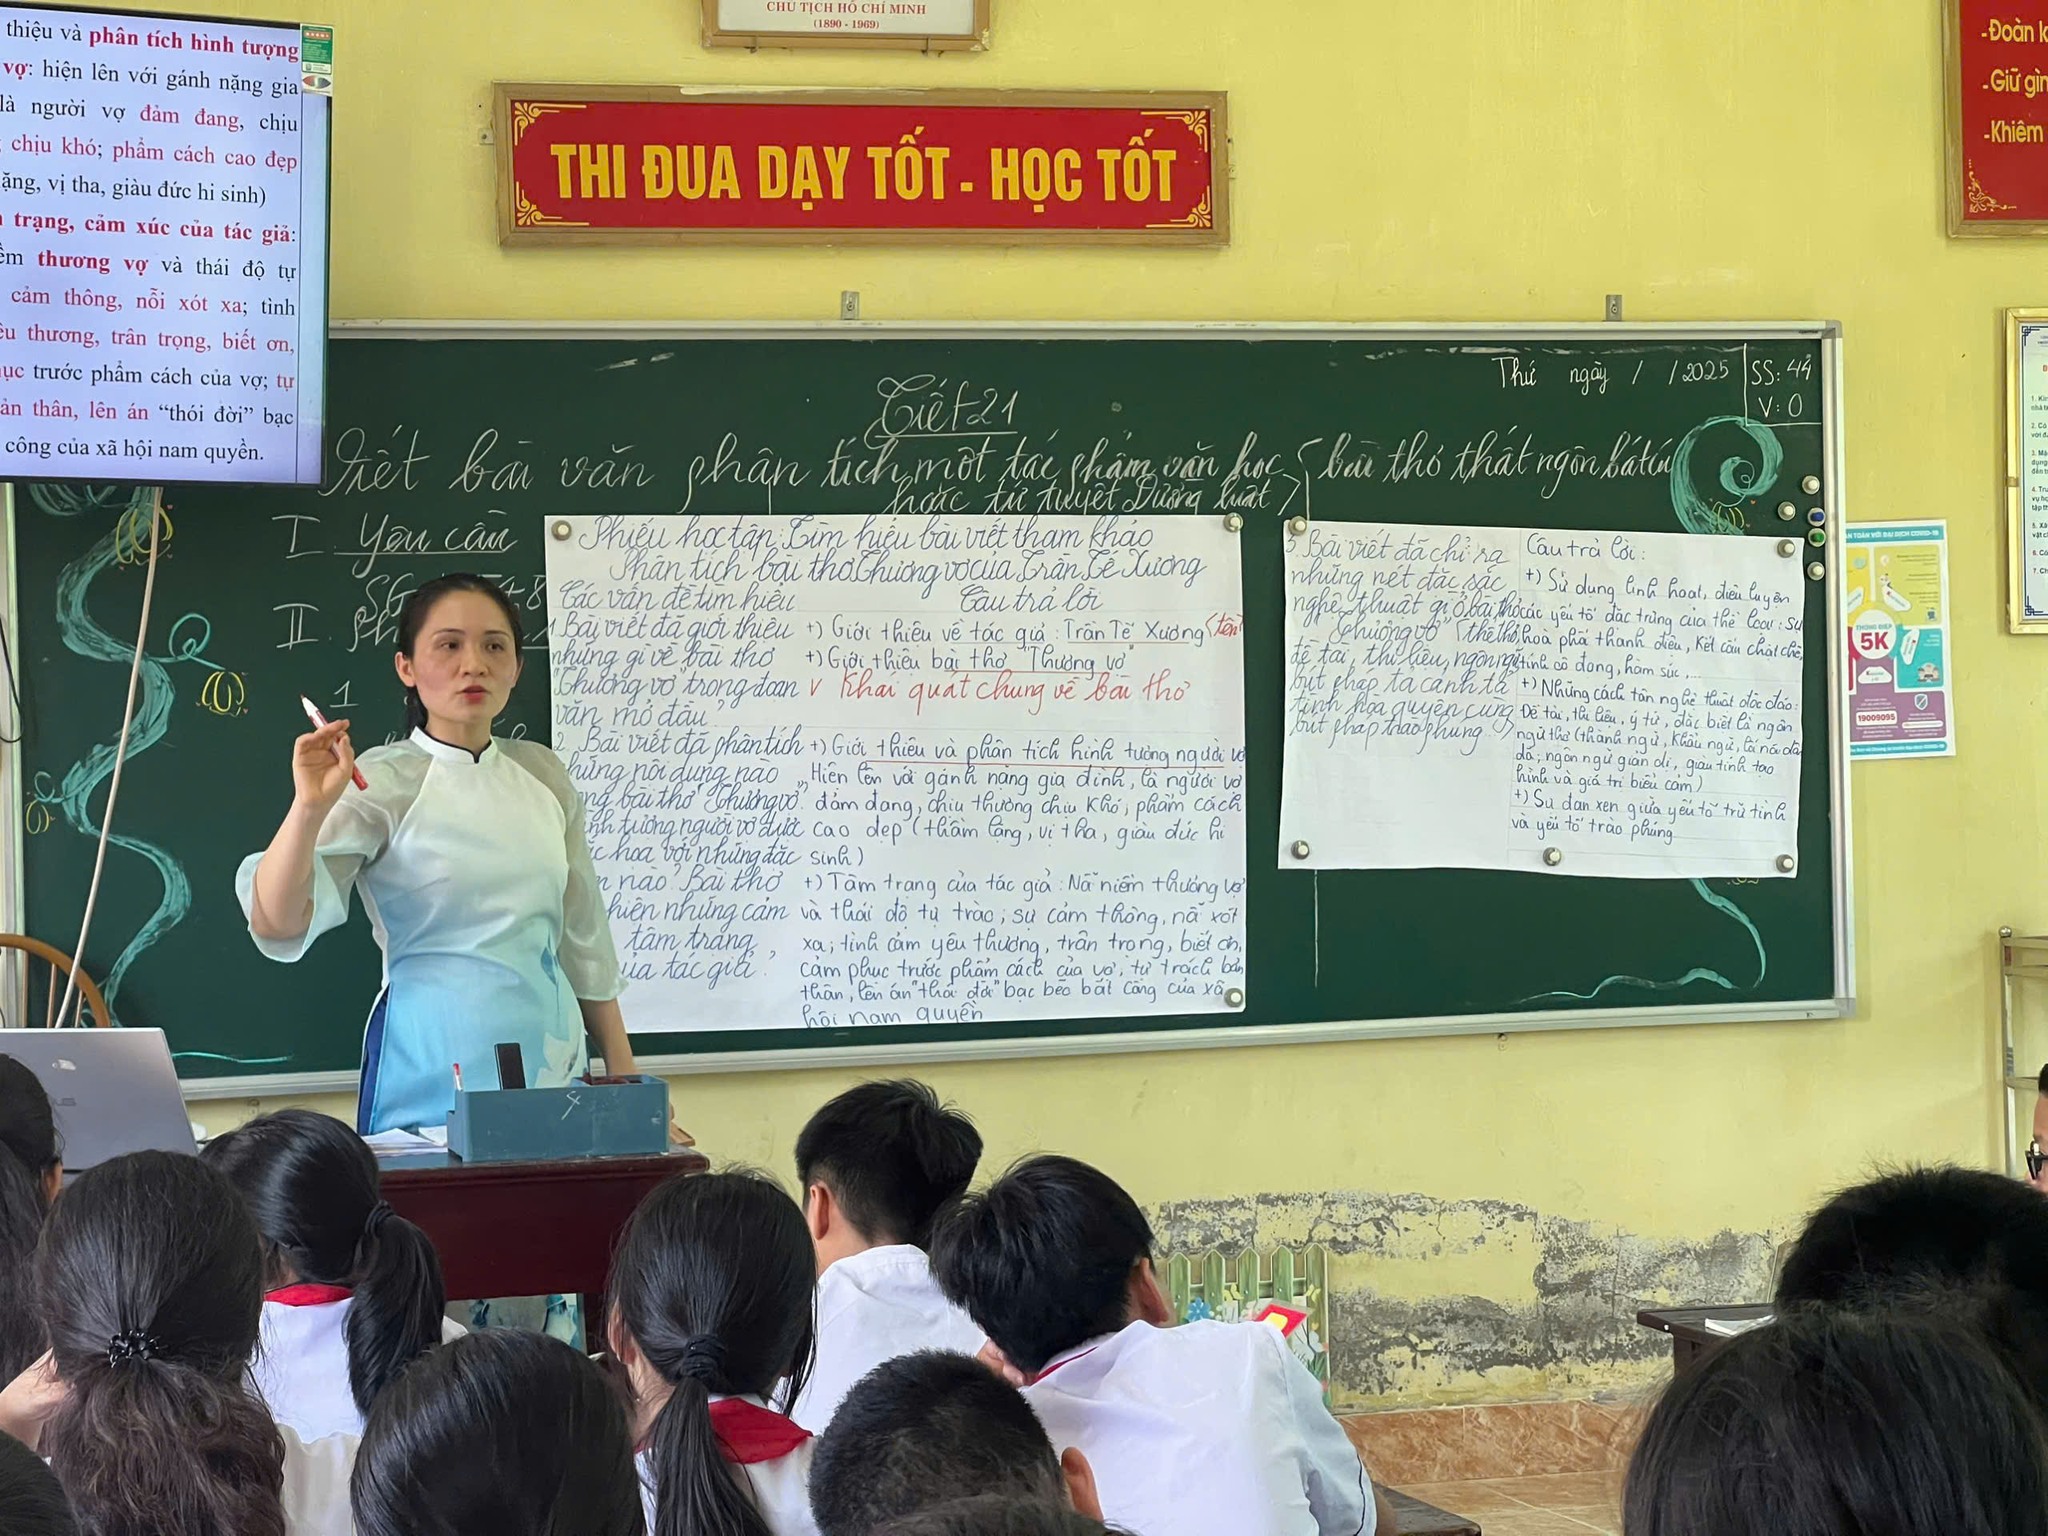 CHỦ TỊCH HỒ CHÍ MINH
(1890 - 1969)
THI ĐUA DẠY TỐT - HỌC TỐT
-Đoàn k
-Giữ gìn
-Khiêm
thiệu và phân tích hình tượng
vợ: hiện lên với gánh nặng gia
là người vợ đảm đang, chịu
chịu khó; phẩm cách cao đẹp
ặng, vị tha, giàu đức hi sinh)
trạng, cảm xúc của tác giả:
ềm thương vợ và thái độ tự
cảm thông, nỗi xót xa; tình
êu thương, trân trọng, biết ơn,
ục trước phẩm cách của vợ; tự
ản thân, lên án “thói đời” bạc
công của xã hội nam quyền.
Thứ ngày / /2025
SS: 44
V: 0
Tiết 21
Viết bài văn phân tích một tác phẩm văn học (bài thơ thất ngôn bát cú
hoặc tứ tuyệt Đường luật)
I. Yêu cầu
SG
II.
1
Phiếu học tập: Tìm hiểu bài viết tham khảo
Phân tích bài thơ Thương vợ của Trần Tế Xương
Các vấn đề tìm hiểu
Câu trả lời
1. Bài viết đã giới thiệu
những gì về bài thơ
"Thương vợ" trong đoạn
văn mở đầu?
+) Giới thiệu về tác giả: Trần Tế Xương
+) Giới thiệu bài thơ "Thương vợ"
v Khái quát chung về bài thơ
2. Bài viết đã phân tích
những nội dung nào
ng bài thơ "Thương vợ"?
ình tượng người vợ được
ắc hoạ với những đặc
m nào? Bài thơ
hiện những cảm
tâm trạng
ủa tác giả?
+) Giới thiệu và phân tích hình tượng người vợ
Hiện lên với gánh nặng gia đình, là người vợ
đảm đang, chịu thương chịu khó; phẩm cách
cao đẹp (thầm lặng, vị tha, giàu đức hi
sinh)
+) Tâm trạng của tác giả: Nỗi niềm thương vợ
và thái độ tự trào; sự cảm thông, nỗi xót
xa; tình cảm yêu thương, trân trọng, biết ơn,
cảm phục trước phẩm cách của vợ; tự trách bản
thân, lên án "thói đời" bạc bẽo bất công của xã
hội nam quyền
3. Bài viết đã chỉ ra
những nét đặc sắc
nghệ thuật gì ở bài thơ
"Thương vợ" (thể thơ,
đề tài, thi liệu, ngôn ngữ
bút pháp tả cảnh tả
tình hòa quyện cùng
bút pháp trào phúng...)
Câu trả lời:
+) Sử dụng linh hoạt, điêu luyện
các yếu tố đặc trưng của thể loại: sự
hoà phá thanh điệu, kết cấu chặt chẽ,
tính cô đọng, hàm súc,...
+) Những cách tân nghệ thuật độc đáo:
Đề tài, thi liệu, ý tứ, đặc biệt là ngôn
ngữ thơ (thành ngữ, khẩu ngữ, lối nói dân
dã; ngôn ngữ giản dị, giàu tính tạo
hình và giá trị biểu cảm)
+) Sự đan xen giữa yếu tố trữ tình
và yếu tố trào phúng
AN TOÀN VỚI ĐẠI DỊCH COVID-19
THÔNG ĐIỆP
5K
19009095